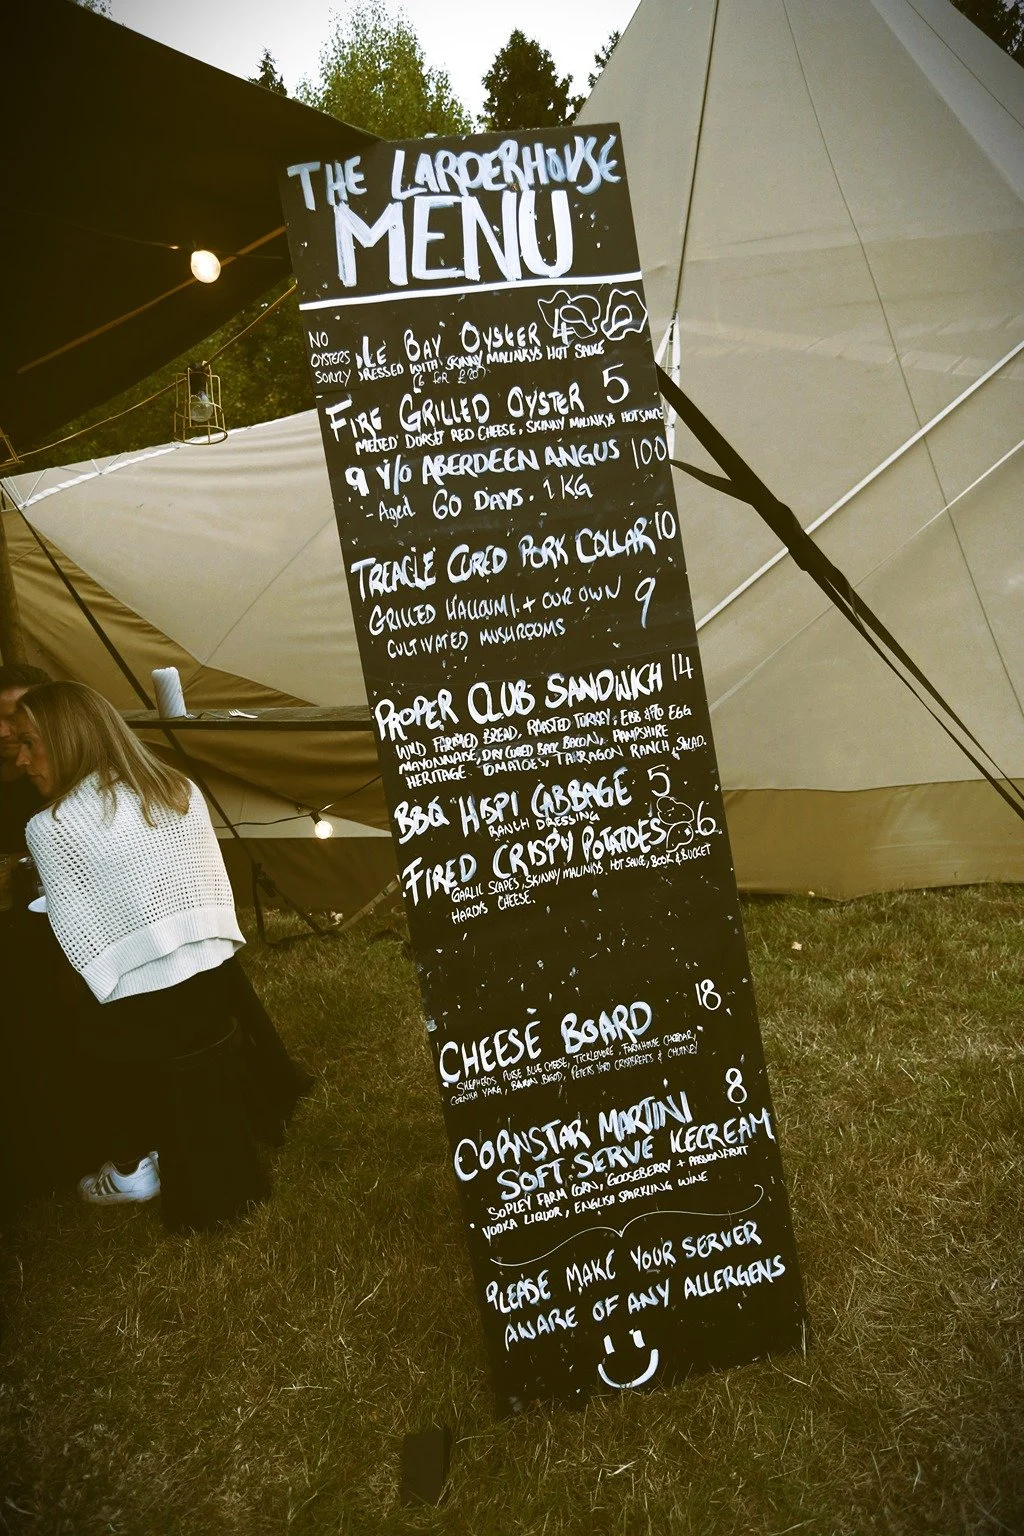 THE LARDERHOUSE
MENU
NO
OYSTERS
SORRY
LE BAY OYSTER 4
DRESSED WITH SKINNY MALINKYS HOT SAUCE
(6 FOR £20)
FIRE GRILLED OYSTER 5
MELTED DORSET RED CHEESE, SKINNY MALINKYS HOT SAUCE
9 Y/O ABERDEEN ANGUS 100
- Aged 60 DAYS. 1 KG
TREACLE CURED PORK COLLAR 10
GRILLED HALLOUMI. + OUR OWN 9
CULTIVATED MUSHROOMS
PROPER CLUB SANDWICH 14
WILD FARMED BREAD, ROASTED TURKEY, EGG
MAYONNAISE, DRY CURED BACK BACON, HAMPSHIRE
HERITAGE TOMATOES, TARRAGON RANCH, SALAD.
BBQ HISPI CABBAGE 5
RANCH DRESSING
FIRED CRISPY POTATOES 6
GARLIC SCAPES, SKINNY MALINKYS HOT SAUCE, BOOK & BUCKET
HARDYS CHEESE.
CHEESE BOARD 18
SHEPHERDS PURSE BLUE CHEESE, TICKLEMORE, FARMHOUSE CHEDDAR,
CORNISH YARG, BARON BIGOD, PETERS YARD CRISPBREADS & CHUTNEY
CORNSTAR MARTINI 8
SOFT SERVE ICECREAM
SOPLEY FARM CORN, GOOSEBERRY + PASSIONFRUIT
VODKA LIQUOR, ENGLISH SPARKLING WINE
PLEASE MAKE YOUR SERVER
AWARE OF ANY ALLERGENS